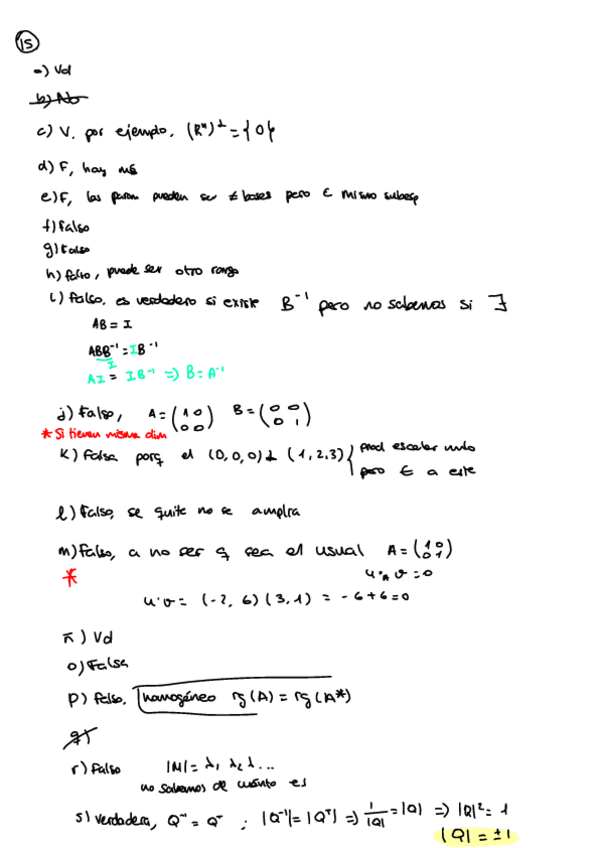 15
a) Vd
b) No
c) V, por ejemplo, (Rⁿ)^⊥ = {0}
d) F, hay más
e) F, las param pueden ser ≠ bases pero ∈ mismo subesp
f) Falso
g) Falso
h) falso, puede ser otro rango
i) falso, es verdadero si existe B⁻¹ pero no sabemos si ∃
AB = I
ABB⁻¹ = IB⁻¹
I
AI = IB⁻¹ => B = A⁻¹
j) Falso, A = (1 0 0 0) B = (0 0 0 1)
* Si tienen misma dim
k) Falsa porq el (0,0,0) ⊥ (1,2,3) } prod escalar nulo
pero ∈ a este
l) Falso, se quite no se amplia
m) Falso, a no ser q sea el usual A = (1 0 0 1)
* u·_A v = 0
u·v = (-2, 6) (3, 1) = -6 + 6 = 0
ñ) Vd
o) Falsa
p) Falso. homogéneo rg(A) = rg(A*)
q)
r) Falso |M| = λ₁ λ₂ λ...
no sabemos de cuánto es
s) Verdadera, Q⁻¹ = Qᵀ ; |Q⁻¹| = |Qᵀ| => 1/|Q| = |Q| => |Q|² = 1
|Q| = ±1